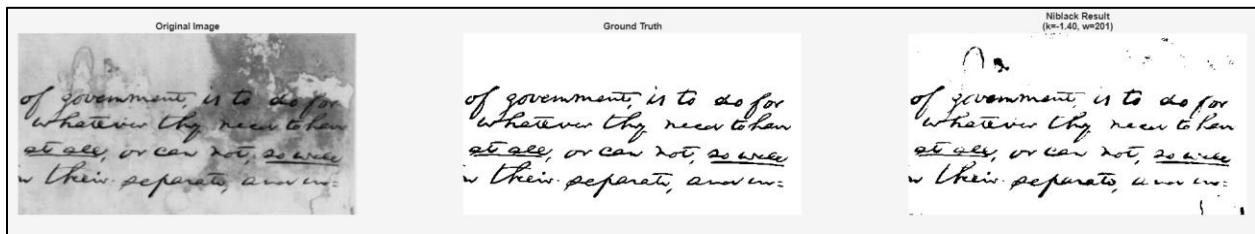 Original Image
of government, is to do for
whatever they need to have
at all, or can not, so well
in their separate, and in=
Ground Truth
of government, is to do for
whatever they need to have
at all, or can not, so well
in their separate, and in=
Niblack Result
(k=-1.40, w=201)
of government, is to do for
whatever they need to have
at all, or can not, so well
in their separate, and in=